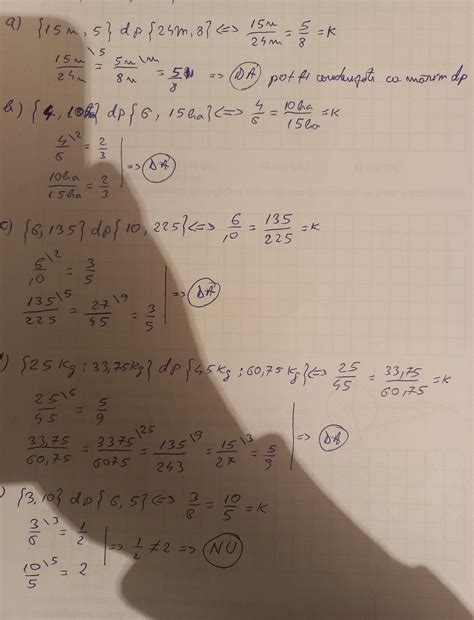 a) {15m, 5} dp {24m, 8} <=> 15m/24m = 5/8 = K
15m/24m \5 = 5m/8m \m = 5/8 => DA pot fi considerați ca mărimi dp
b) {4, 10ha} dp {6, 15ha} <=> 4/6 = 10ha/15ha = K
4/6 \2 = 2/3
10ha/15ha = 2/3 => DA
c) {6, 135} dp {10, 225} <=> 6/10 = 135/225 = K
6/10 \2 = 3/5
135/225 \5 = 27/45 \9 = 3/5 => DA
) {25 Kg ; 33,75 Kg} dp {45 Kg ; 60,75 Kg} <=> 25/45 = 33,75/60,75 = K
25/45 \5 = 5/9
33,75/60,75 = 3375/6075 \25 = 135/243 \9 = 15/27 \3 = 5/9 => DA
) {3, 10} dp {6, 5} <=> 3/6 = 10/5 = K
3/6 \3 = 1/2
10/5 \5 = 2 => 1/2 ≠ 2 => NU